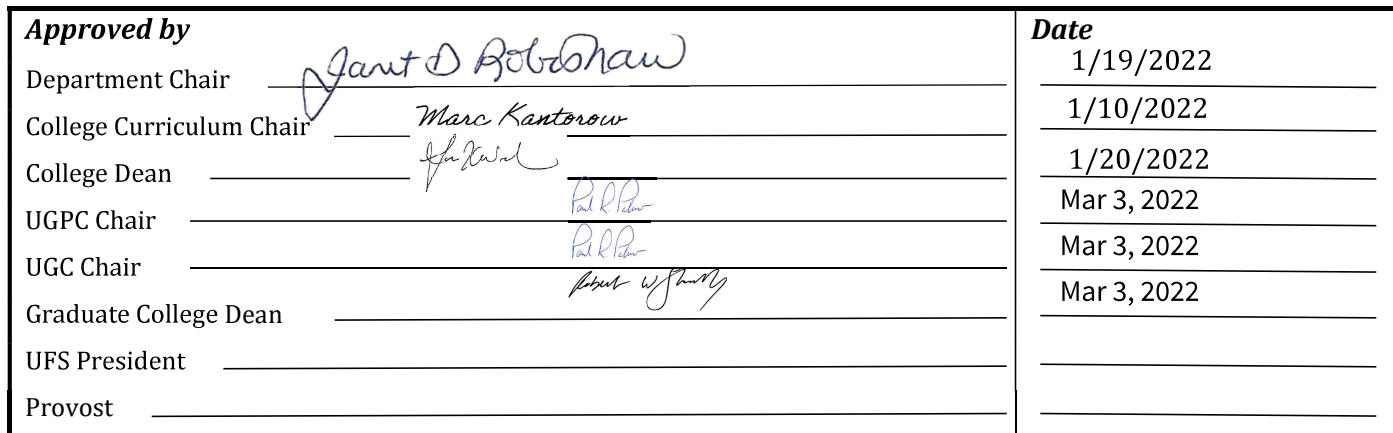 Approved by Date
Department Chair Janet D Robishaw 1/19/2022
College Curriculum Chair Marc Kantorow 1/10/2022
College Dean 1/20/2022
UGPC Chair Paul R. Mar 3, 2022
UGC Chair Paul R. Mar 3, 2022
Graduate College Dean Robert W Mar 3, 2022
UFS President
Provost